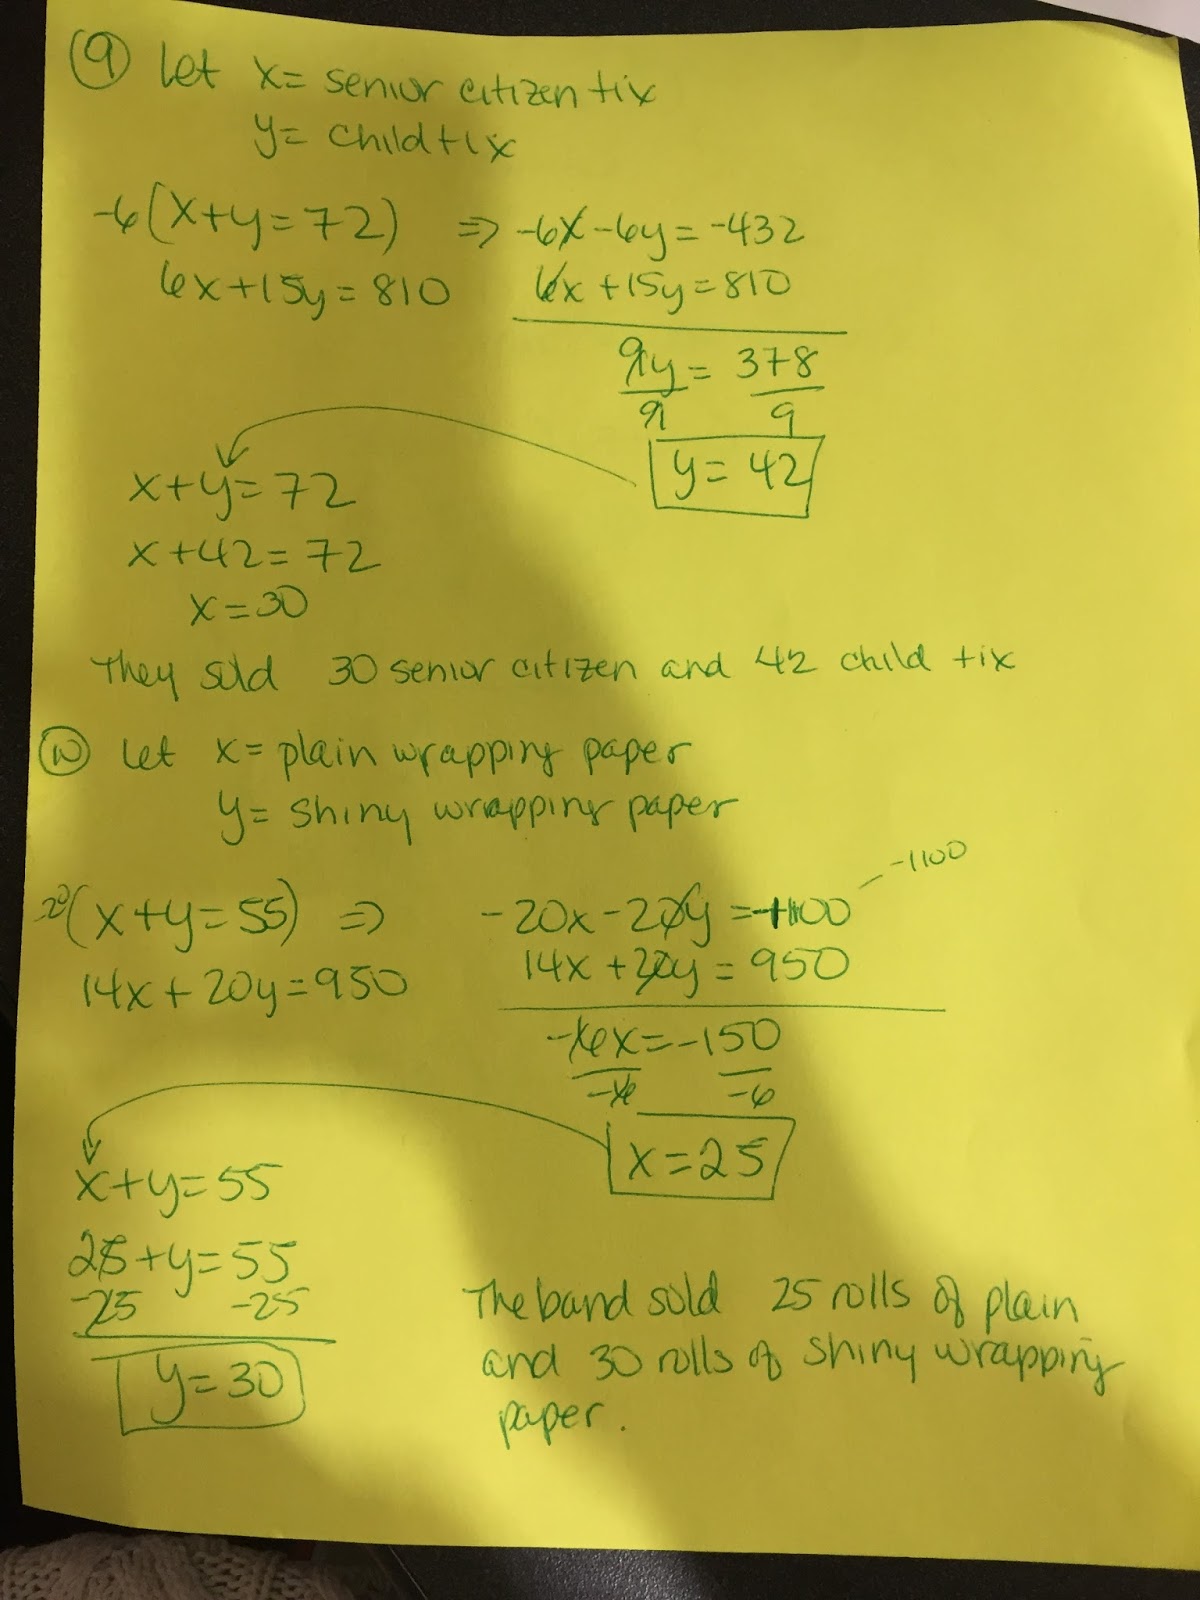 9 Let x = senior citizen tix
y = child tix
-6(x+y=72) => -6x-6y=-432
6x+15y=810 6x+15y=810
9y = 378
9 9
y = 42
x+y=72
x+42=72
x=30
They sold 30 senior citizen and 42 child tix
10 Let x = plain wrapping paper
y = shiny wrapping paper
-1100
-20(x+y=55) => -20x-20y=-1100
14x+20y=950 14x+20y=950
-6x=-150
-6 -6
x=25
x+y=55
25+y=55
-25 -25
y=30
The band sold 25 rolls of plain
and 30 rolls of shiny wrapping
paper.